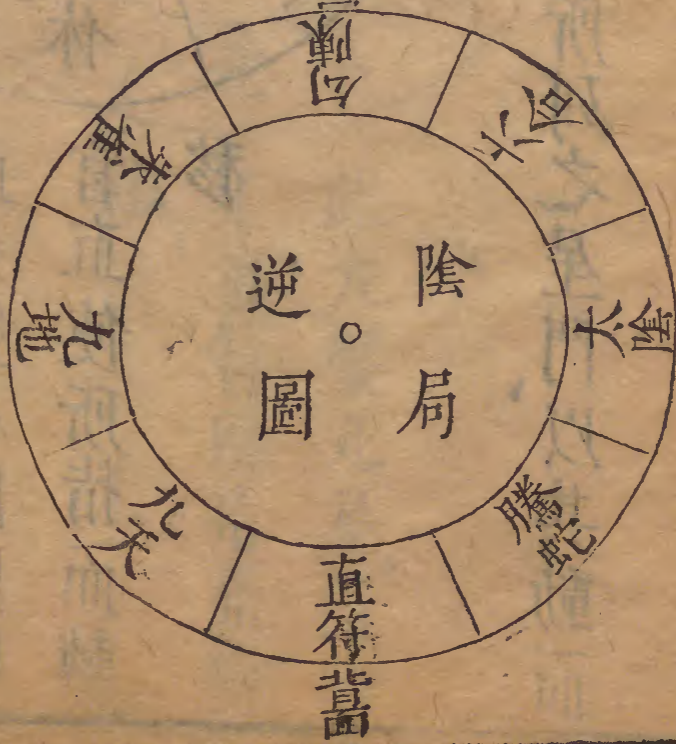 陰局
逆圖
直符
騰蛇
太陰
六合
勾陳
朱雀
九地
九天